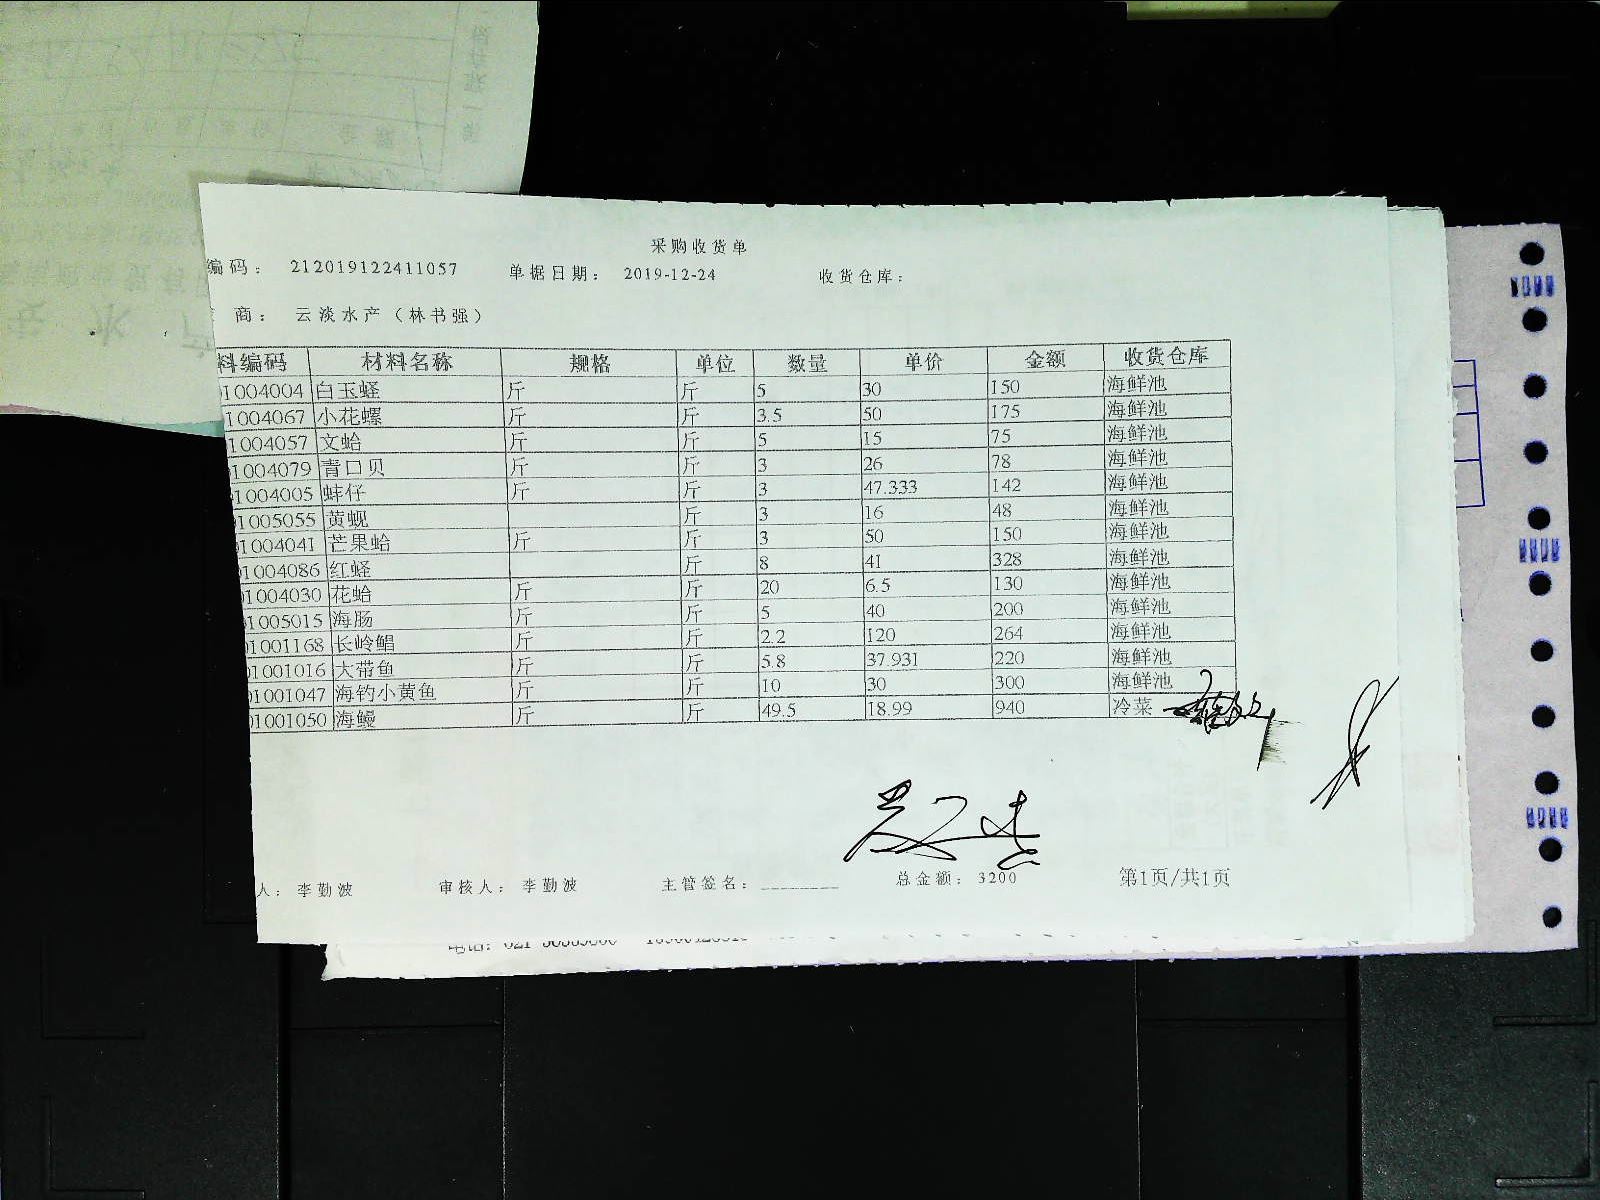 采购收货单
编码： 212019122411057 单据日期： 2019-12-24 收货仓库：
商： 云淡水产（林书强）
料编码 材料名称 规格 单位 数量 单价 金额 收货仓库
1004004 白玉蛏 斤 斤 5 30 150 海鲜池
1004067 小花螺 斤 斤 3.5 50 175 海鲜池
1004057 文蛤 斤 斤 5 15 75 海鲜池
1004079 青口贝 斤 斤 3 26 78 海鲜池
1004005 蚌仔 斤 斤 3 47.333 142 海鲜池
1005055 黄蚬 斤 3 16 48 海鲜池
1004041 芒果蛤 斤 斤 3 50 150 海鲜池
1004086 红蛏 斤 8 41 328 海鲜池
1004030 花蛤 斤 斤 20 6.5 130 海鲜池
1005015 海肠 斤 斤 5 40 200 海鲜池
01001168 长岭鲳 斤 斤 2.2 120 264 海鲜池
01001016 大带鱼 斤 斤 5.8 37.931 220 海鲜池
01001047 海钓小黄鱼 斤 斤 10 30 300 海鲜池
01001050 海鳗 斤 斤 49.5 18.99 940 冷菜
人： 李勤波 审核人： 李勤波 主管签名： 总金额： 3200 第1页/共1页